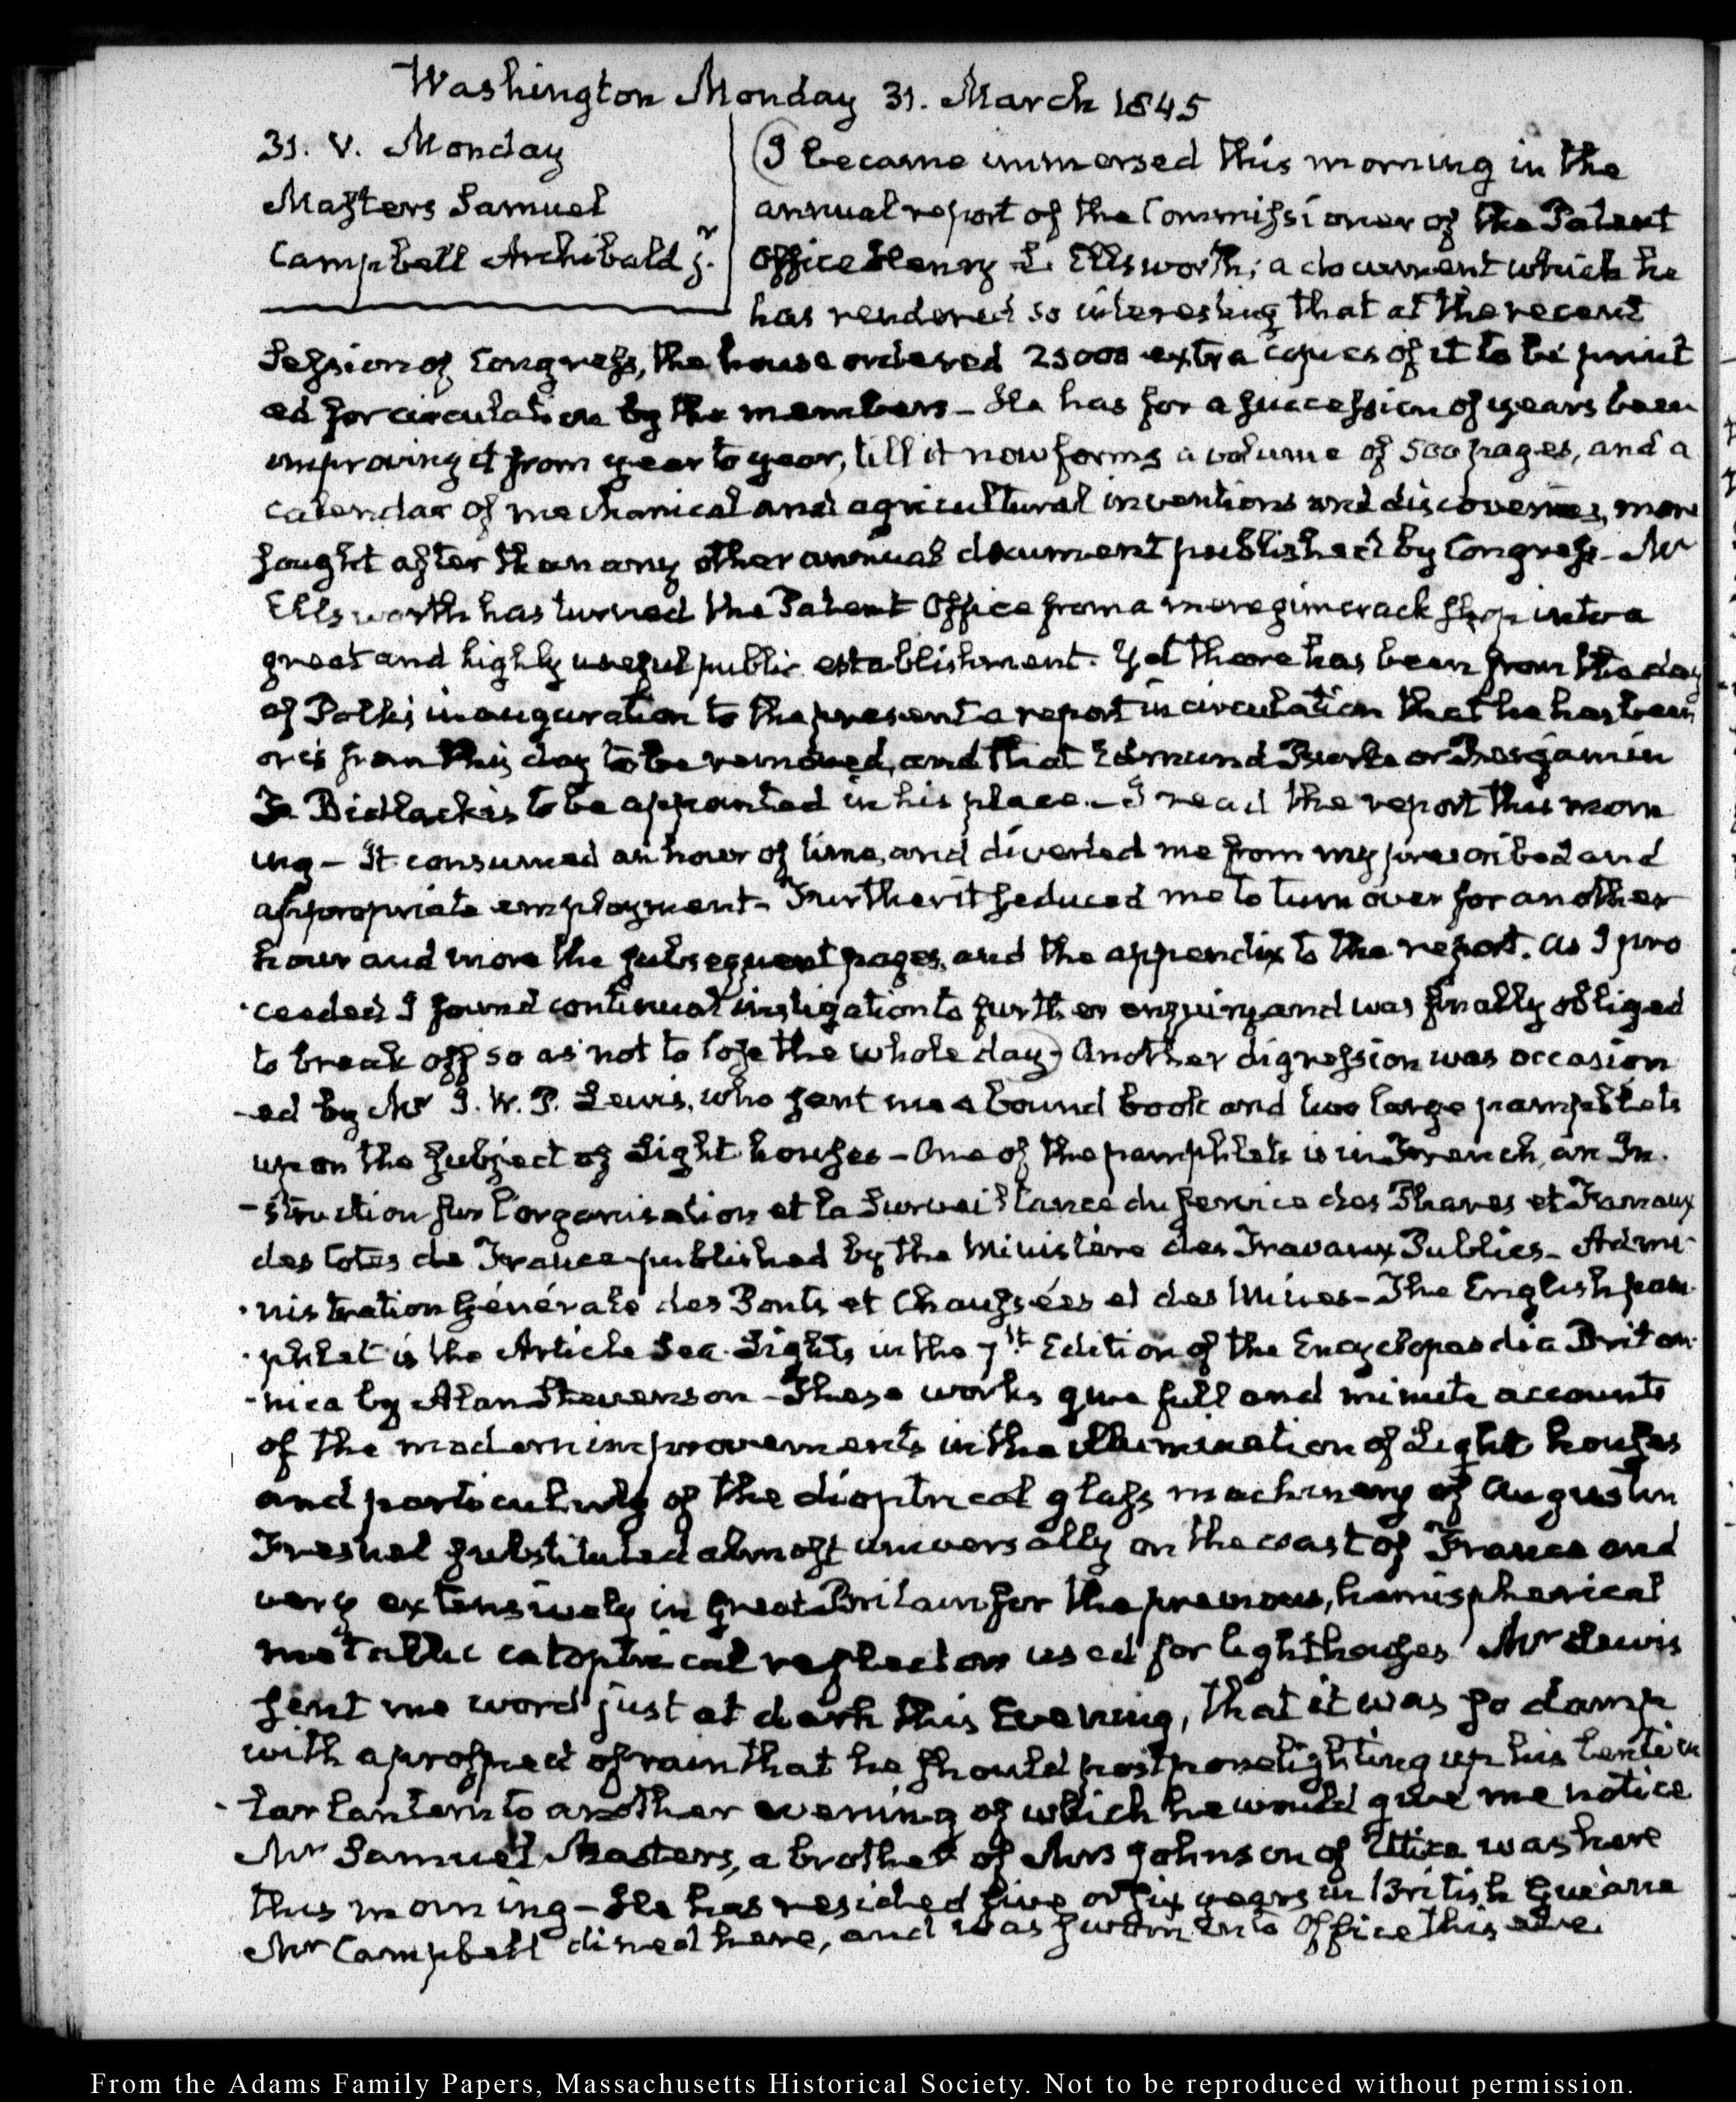 Washington Monday 31. March 1845
31. V. Monday
Masters Samuel
Campbell Archibald jr.
I became immersed this morning in the
annual report of the Commissioner of the Patent
Office Henry L. Ellsworth; a document which he
has rendered so interesting that at the recent
Session of Congress, the house ordered 25000 extra copies of it to be print
ed for circulation by the members – He has for a succession of years been
improving it from year to year, till it now forms a volume of 500 pages, and a
calendar of mechanical and agricultural inventions and discoveries, more
sought after than any other annual document published by Congress – Mr
Ellsworth has turned the Patent Office from a mere gimcrack shop into a
great and highly useful public establishment. Yet there has been from the day
of Polk's inauguration to the present a report in circulation that he has been
or is from this day to be removed, and that Edmund Burke or Benjamin
A. Bidlack is to be appointed in his place. – I read the report this morn
ing – It consumed an hour of time, and diverted me from my prescribed and
appropriate employment – Further it seduced me to turn over for another
hour and more the subsequent pages, and the appendix to the report. As I pro
-ceeded I found continual instigation to further enquiry and was finally obliged
to break off so as not to lose the whole day – Another digression was occasion
-ed by Mr I. W. P. Lewis, who sent me a bound book and two large pamphlets
upon the subject of Light houses – One of the pamphlets is in French, an In-
-struction sur l'organisation et la Surveillance du service des Phares et Fanaux
des Cotes de France published by the Ministère des Travaux Publics – Admi-
-nistration Générale des Ponts et Chaussées et des Mines – The English pam-
-phlet is the Article Sea-Lights, in the 7th Edition of the Encyclopaedia Britan-
-nica by Alan Stevenson – These works give full and minute accounts
of the modern improvements in the illumination of Light houses
and particularly of the dioptrical glass machinery of Augustin
Fresnel substituted almost universally on the coast of France and
very extensively in great Britain for the previous, hemispherical
metallic catoptrical reflectors used for lighthouses Mr Lewis
sent me word just at dark this Evening, that it was so damp
with a prospect of rain that he should postpone lighting up his lenticu
-lar lantern to another evening of which he would give me notice
Mr Samuel Masters, a brother of Mrs Johnson of Utica was here
this morning – He has resided five or six years in British Guiana
Mr Campbell dined here, and was sworn into Office this
From the Adams Family Papers, Massachusetts Historical Society. Not to be reproduced without permission.